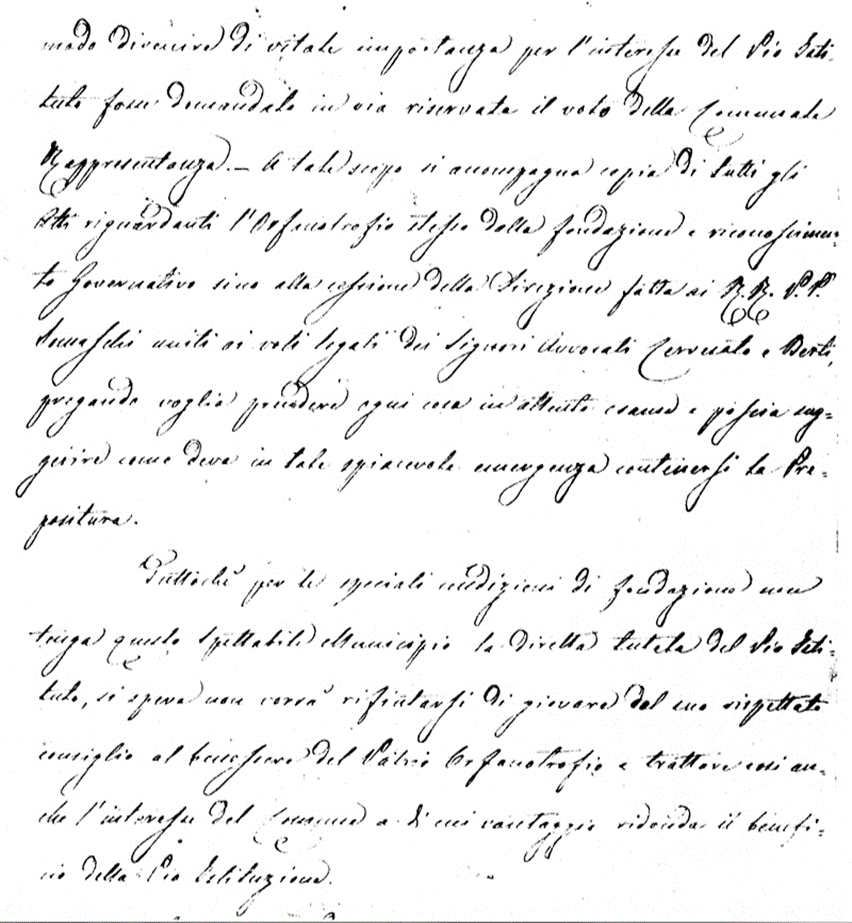 modo divenire di vitale importanza per l'interesse del Pio Isti-
tuto fosse demandato in via riservata il voto della Comunale
Rappresentanza. - A tale scopo si accompagna copia di tutti gli
Atti riguardanti l'Orfanotrofio stesso dalla fondazione e riconoscimen-
to Governativo sino alla cessione della Direzione fatta ai R.R. P.P.
Somaschi uniti ai voti legali dei Signori Avvocati e Berti,
pregando voglia prendere ogni cosa in attento esame e poscia sug-
gerire come deva in tale spiacevole emergenza contenersi la Pre-
positura.
Tuttochè per le speciali condizioni di fondazione non
tenga questo Spettabile Municipio la diretta tutela del Pio Isti-
tuto, si spera non vorrà rifiutarsi di giovare del suo rispettato
consiglio al benessere del Patrio Orfanotrofio e trattare così an-
che l'interesse del Comune a di cui vantaggio ridonda il benefi-
cio della Pia Istituzione.